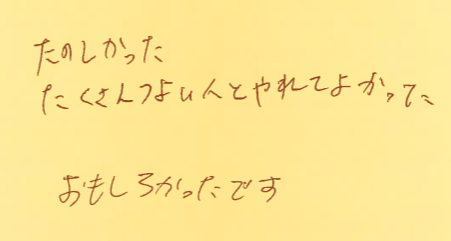 たのしかった
たくさんつよい人とやれてよかった
おもしろかったです